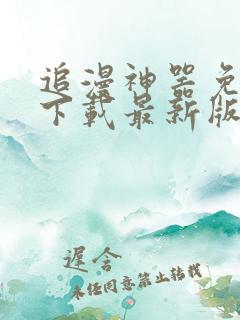 追漫神器免
下载最新版
遲舍
未经同意禁止转载